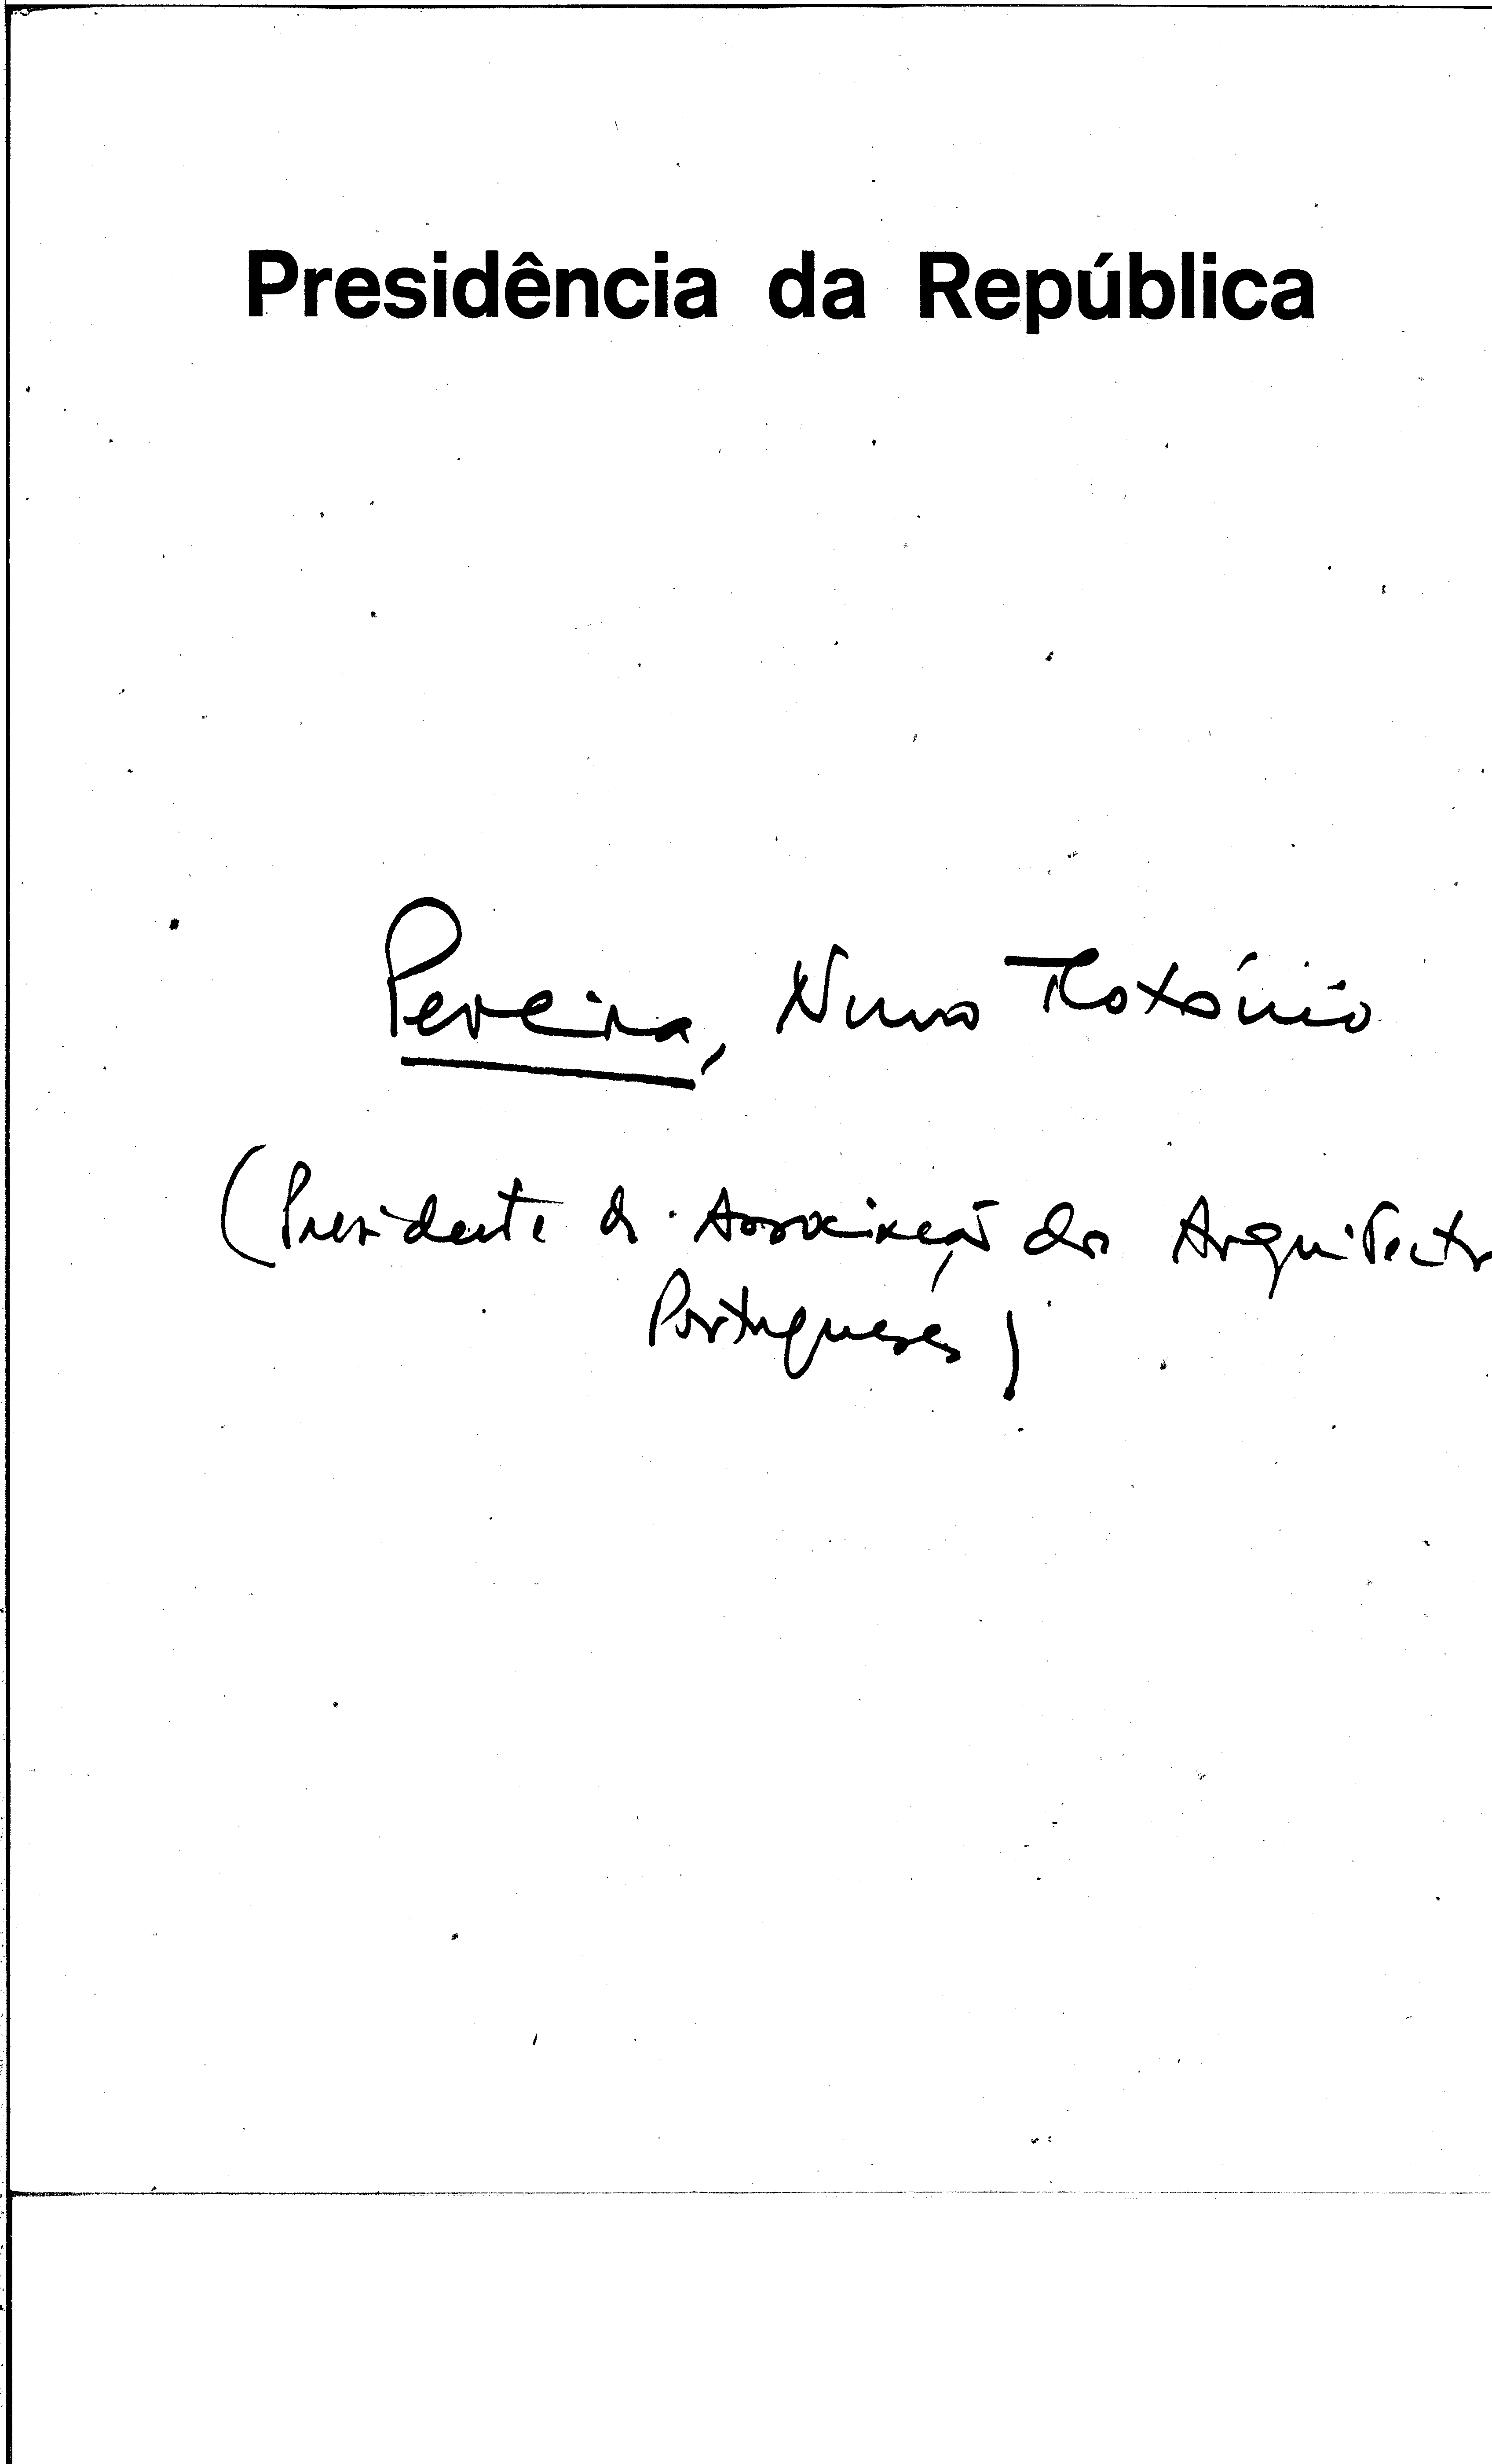 Presidência da República
Pereira, Nuno Teotónio
(Presidente da Associação dos Arquitectos
Portugueses)